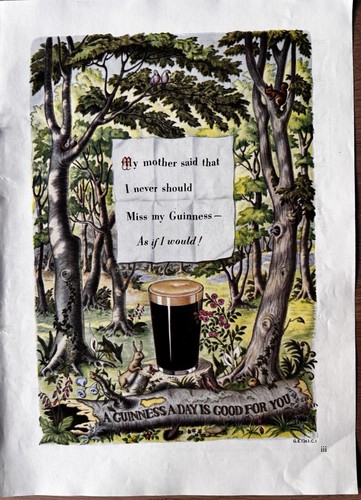 My mother said that
I never should
Miss my Guinness —
As if I would!
A GUINNESS A DAY IS GOOD FOR YOU
G.E.1361.C.1
iii